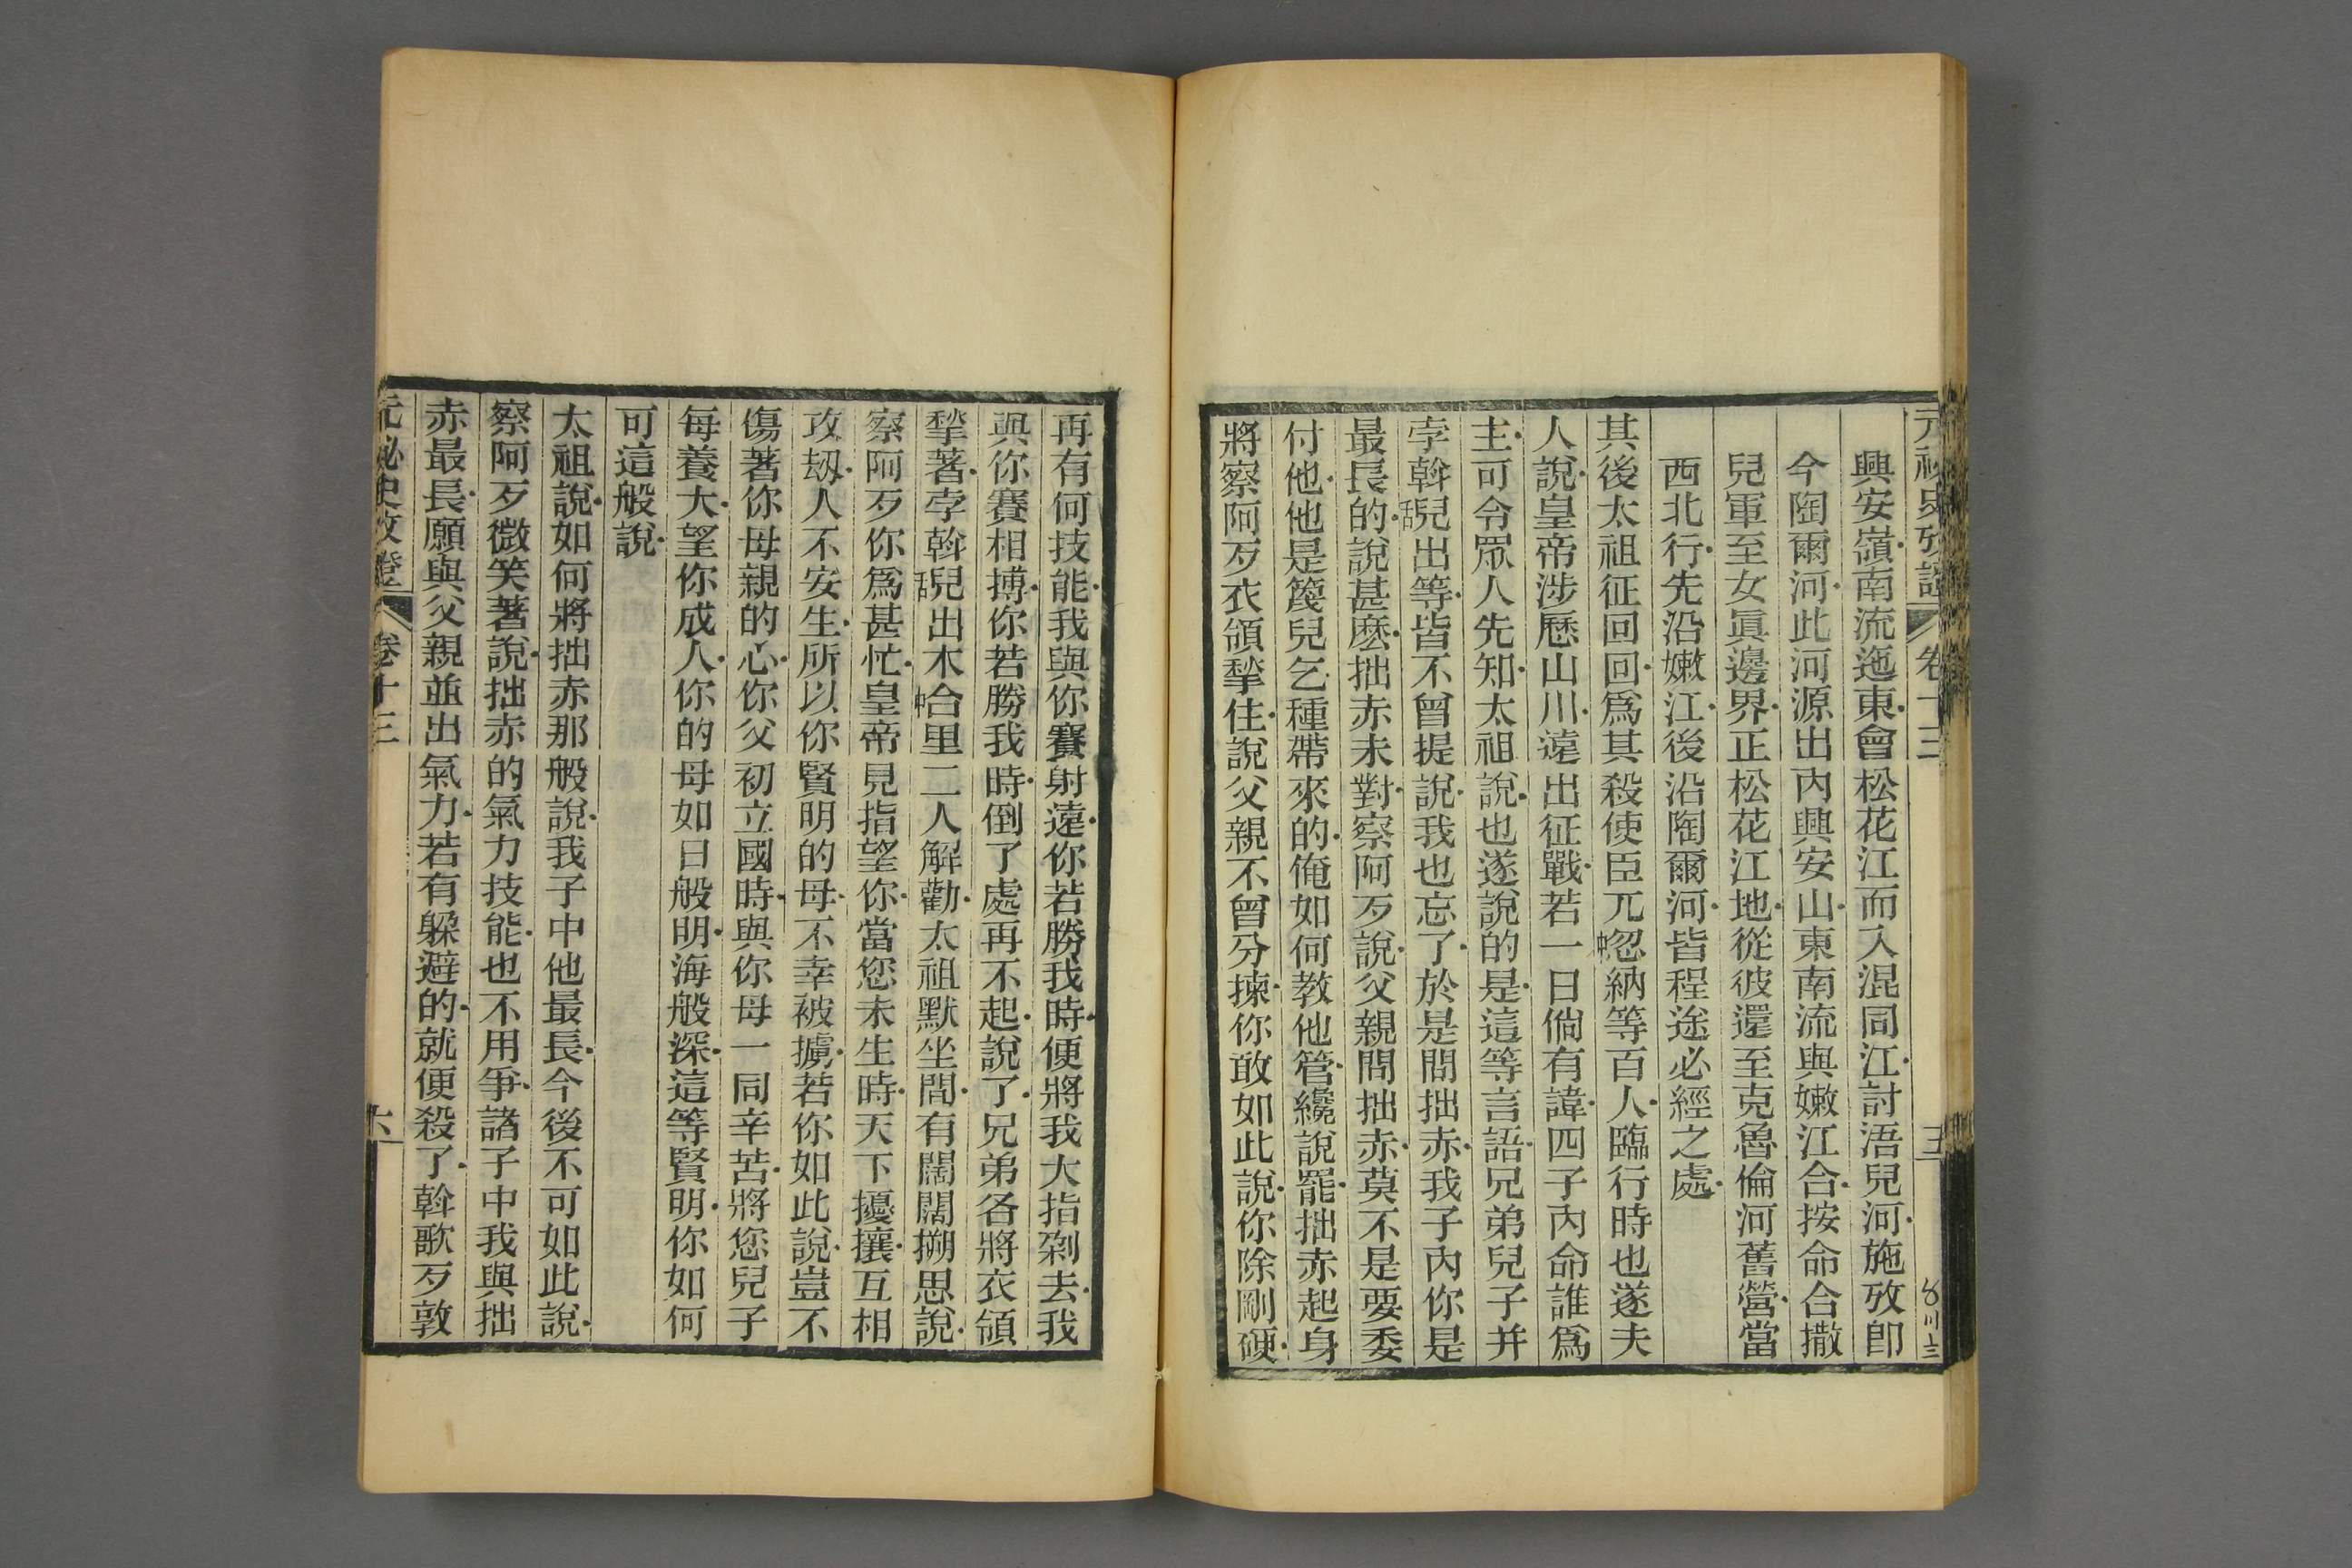 元祕史攷證 卷十三 五
興安嶺南流迤東會松花江而入混同江討浯兒河施攷卽
今陶爾河此河源出內興安山東南流與嫩江合按命合撒
兒軍至女眞邊界正松花江地從彼還至克魯倫河舊營當
西北行先沿嫩江後沿陶爾河皆程途必經之處
其後太祖征回回爲其殺使臣兀中忽納等百人臨行時也遂夫
人說皇帝涉歷山川遠出征戰若一日倘有諱四子內命誰爲
主可令眾人先知太祖說也遂說的是這等言語兄弟兒子并
孛斡舌兒出等皆不曾提說我也忘了於是問拙赤我子內你是
最長的說甚麽拙赤未對察阿歹說父親問拙赤莫不是要委
付他他是篾兒乞種帶來的俺如何教他管纔說罷拙赤起身
將察阿歹衣領揫住說父親不曾分揀你敢如此說你除剛硬
再有何技能我與你賽射遠你若勝我時便將我大指剁去我
與你賽相搏你若勝我時倒了處再不起說了兄弟各將衣領
揫著孛斡舌兒出木中合里二人解勸太祖默坐間有闊闊搠思說
察阿歹你爲甚忙皇帝見指望你當您未生時天下擾攘互相
攻刼人不安生所以你賢明的母不幸被擄若你如此說豈不
傷著你母親的心你父初立國時與你母一同辛苦將您兒子
每養大望你成人你的母如日般明海般深這等賢明你如何
可這般說
太祖說如何將拙赤那般說我子中他最長今後不可如此說
察阿歹微笑著說拙赤的氣力技能也不用爭諸子中我與拙
赤最長願與父親並出氣力若有躲避的就便殺了斡歌歹敦
元祕史攷證 卷十三 六